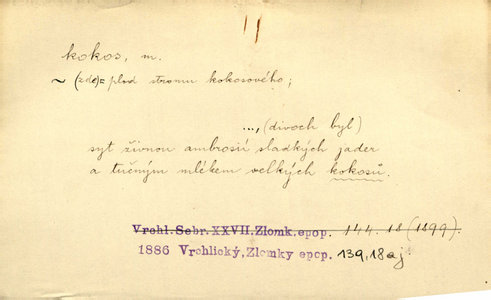 kokos, m.
~ (zde) = plod stromu kokosového;
..., (divoch byl)
syt živnou ambrosií sladkých jader
a tučným mlékem velkých kokosů.
Vrchl. Sebr. XXVII. Zlomk. epop. 144. 18 (1899).
1886 Vrchlický, Zlomky epop. 139,18aj